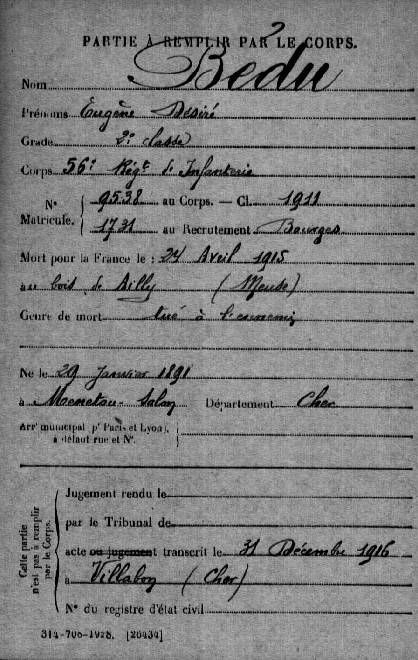 PARTIE À REMPLIR PAR LE CORPS.
Nom Bedu
Prénoms Eugène Désiré
Grade 2e classe
Corps 56e Régt d'Infanterie
N° Matricule. { 9538 au Corps. — Cl. 1911
1731 au Recrutement Bourges
Mort pour la France le : 24 Avril 1915
au bois de Ailly (Meuse)
Genre de mort tué à l'ennemi
Né le 29 Janvier 1891
à Menetou-Salon Département Cher
Arrt municipal pr Paris et Lyon, à défaut rue et N°.
Cette partie n'est pas à remplir par le Corps.
Jugement rendu le
par le Tribunal de
acte ou jugement transcrit le 31 Décembre 1916
à Villabon (Cher)
N° du registre d'état civil